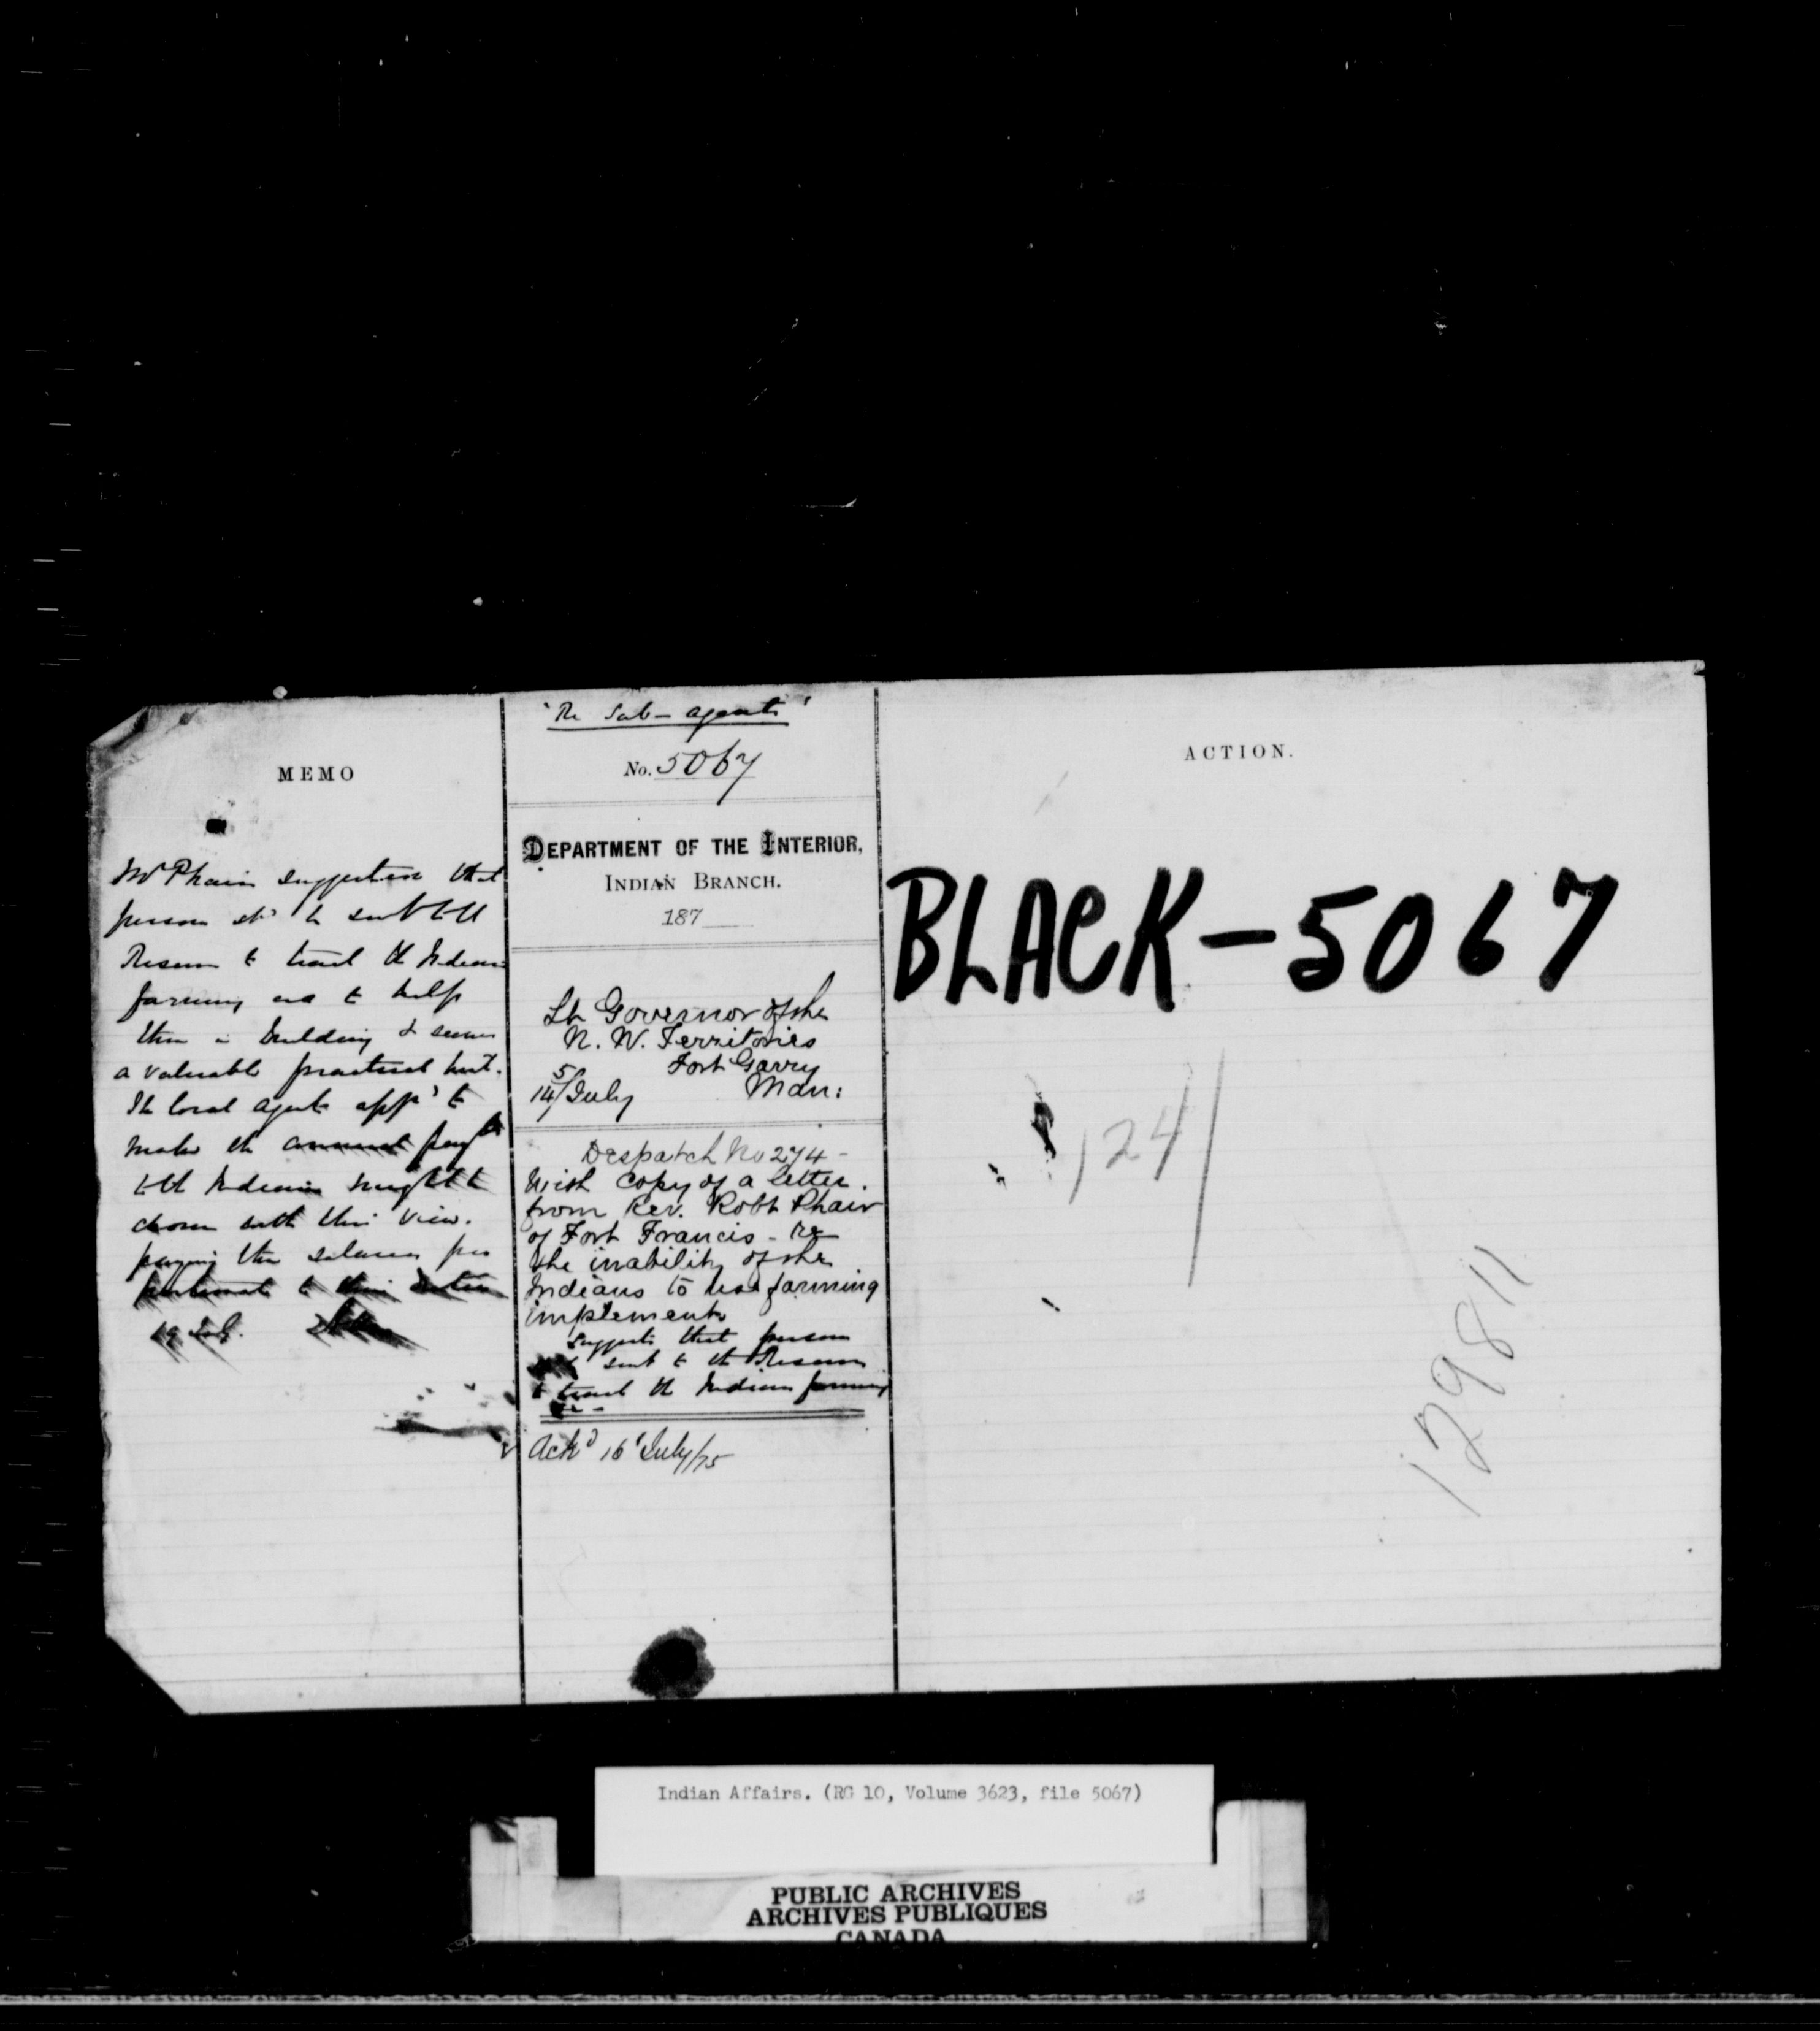 MEMO
Mr Phair's suggestion that
person shd be sent to the
Reserve to teach the Indians
farming and to help
them in building &
a valuable practical hint.
The local agents app'd to
make the annual paymts
to the Indians might be
chosen with this view.
paying them salaries pro
portionate to their duties
19 July
'Re Sub-agents'
No. 5067
DEPARTMENT OF THE INTERIOR,
INDIAN BRANCH.
187
Lt Governor of the
N. W. Territories
Fort Garry
5/14 July Man:
Despatch No 274 -
With copy of a letter
from Rev. Robt Phair
of Fort Francis - re
the inability of the
Indians to use farming
implements
Suggests that person
sent to the Reserve
to teach the Indians farming
&c -
Ackd 16 July/75
ACTION.
BLACK-5067
124
129811
Indian Affairs. (RG 10, Volume 3623, file 5067)
PUBLIC ARCHIVES
ARCHIVES PUBLIQUES
CANADA